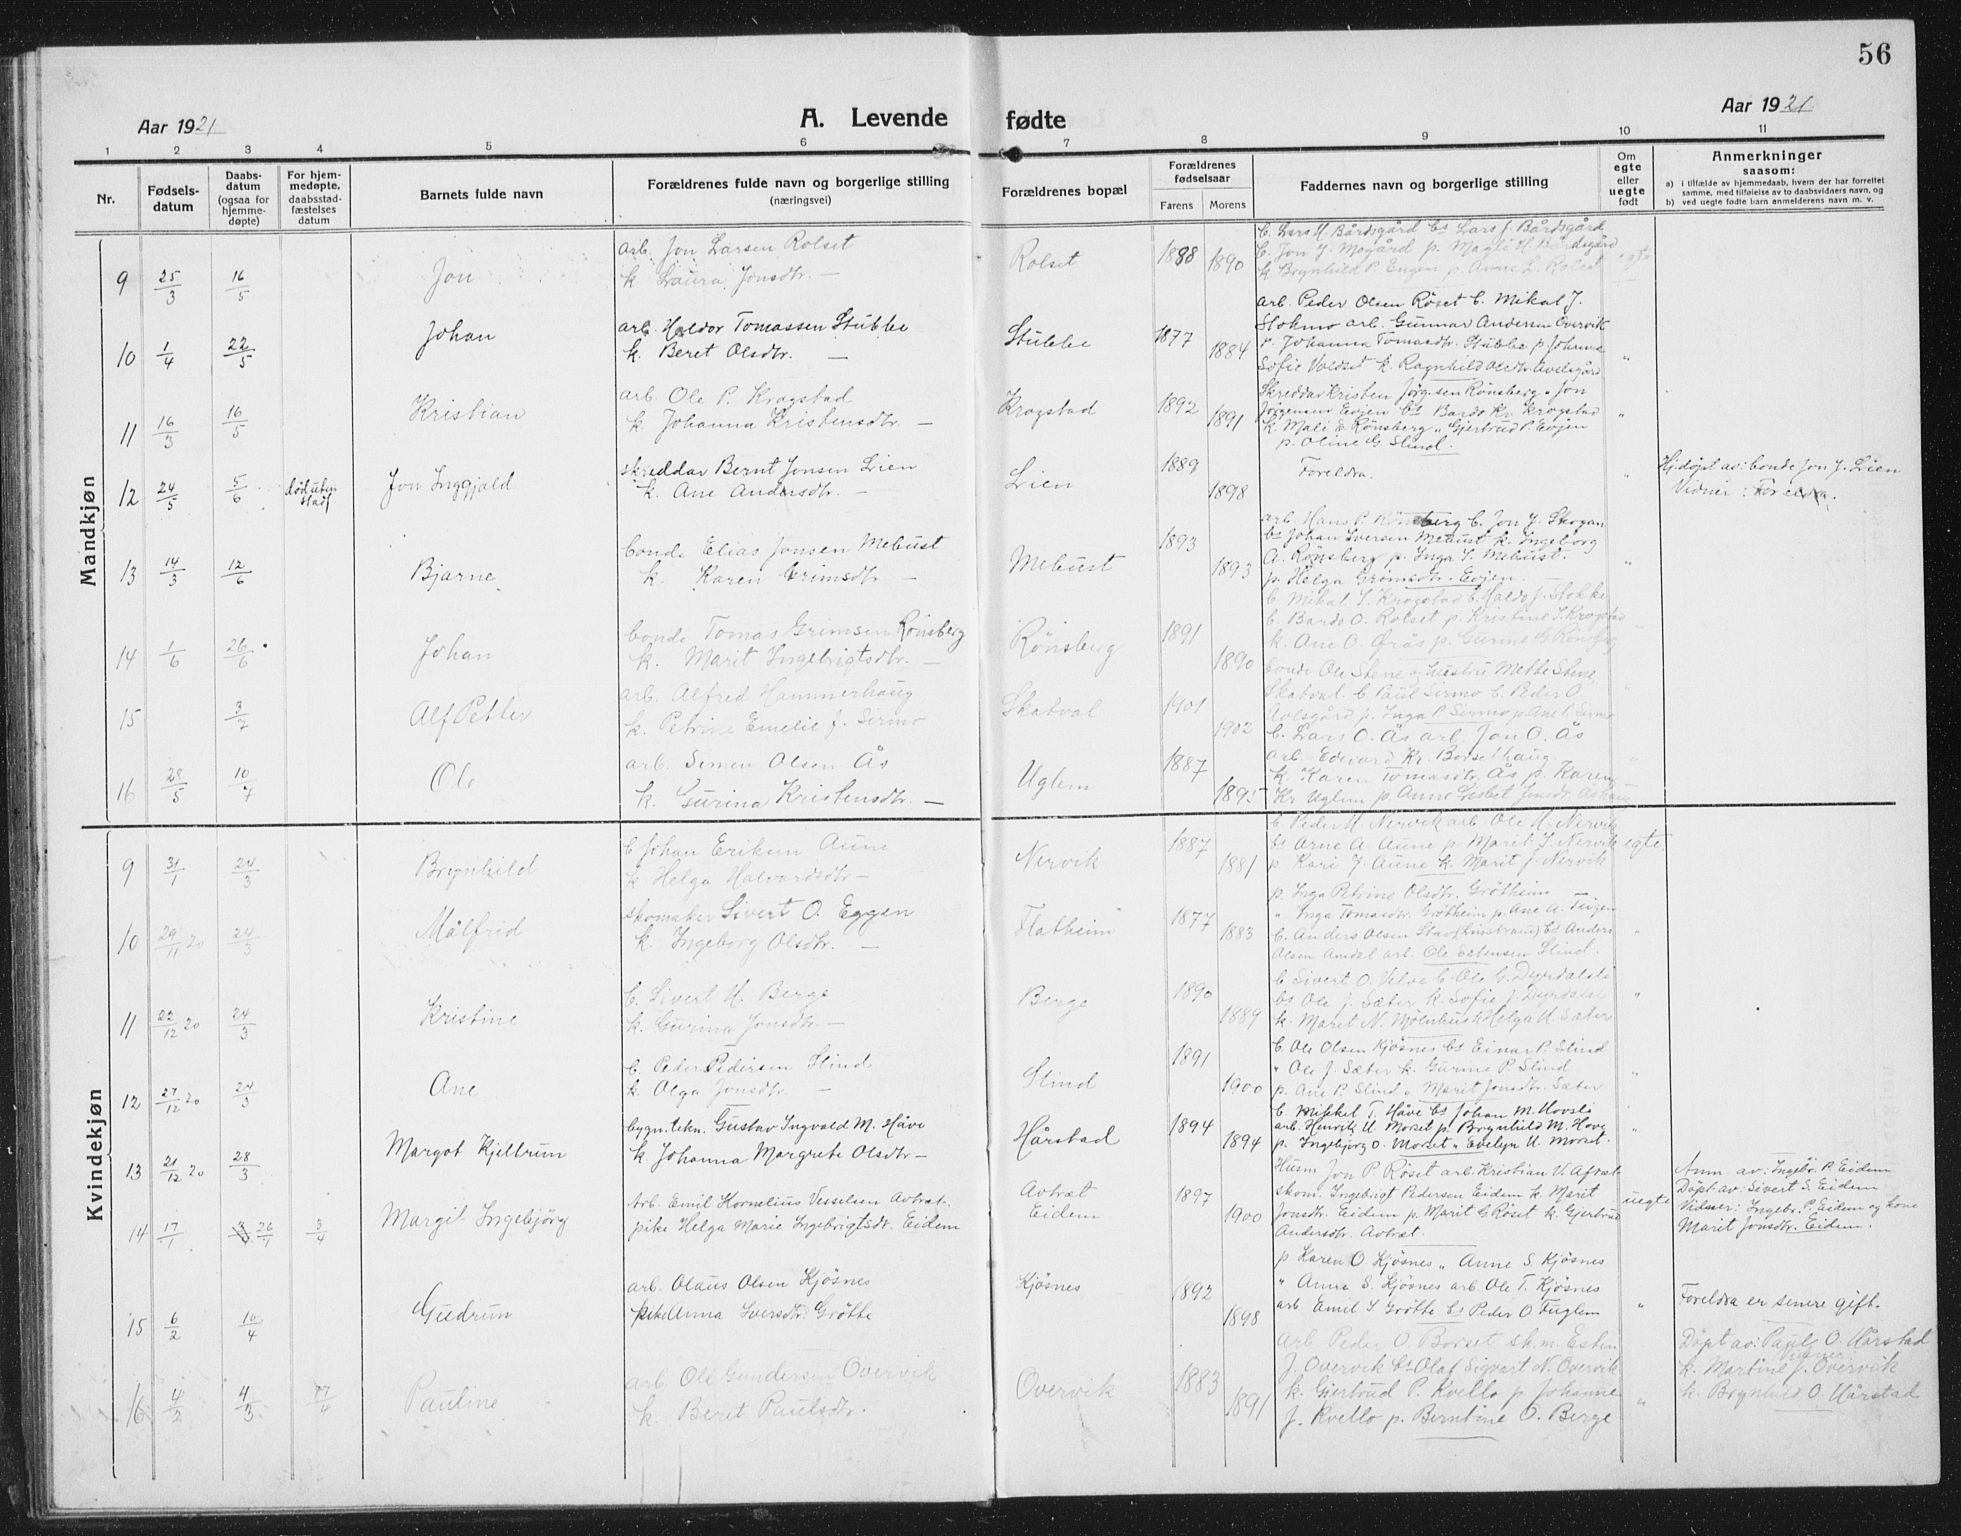 56
Aar 1921
A. Levende fødte
Aar 1921
1 2 3 4 5 6 7 8 9 10 11
Nr.
Fødsels-
datum
Daabs-
datum
(ogsaa for
hjemme-
døpte)
For hjem-
medøpte,
daabsstad-
fæstelses
datum
Barnets fulde navn
Forældrenes fulde navn og borgerlige stilling
(næringsvei)
Forældrenes bopæl
Forældrenes
fødselsaar
Farens Morens
Faddernes navn og borgerlige stilling
Om
egte
eller
uegte
født
Anmerkninger
saasom:
a) i tilfælde av hjemmedaab, hvem der har forrettet
samme, med tilføielse av to daabsvidners navn, og
b) ved uegte fødte barn anmelderens navn m. v.
Mandkjøn
9 25/3 16/5 Jon
arb. Jon Larsen Rolset
k. Laura Jonsdtr. —
Rolset 1888 1890
b. Lars H. Bårdsgård bs Lars J. Bårdsgård
b. Jon J. Mogård p. Magli H. Bårdsgård
k. Brynhild P. Engen p. Anne L. Rolset
egte
10 1/4 22/5 Johan
arb. Haldor Tomassen Stubbe
k. Beret Olsdtr. —
Stubbe 1877 1884
arb. Peder Olsen Röset b. Mikal J.
Stokmo arb. Gunnar Andersen Overvik
p. Johanna Tomasdtr. Stubbe p. Johanna
Sofie Voldset k. Ragnhild Olsdtr. Avelsgård
"
11 16/3 16/5 Kristian
arb. Ole P. Krogstad
k. Johanna Kristensdtr. —
Krogstad 1892 1891
Skreddar Kristen Jörgensen Rönsberg " Jon
Jørgensen Evjen bs Bardo Kr. Krogstad
k. Mali d. Rønsberg " Gjertrud P. Evjen
p. Oline G. Slind.
"
12 24/5 5/6 död uten stadf Jon Inggjald
skreddar Bernt Jonsen Lien
k. Ane Andersdtr. —
Lien 1889 1898
Foreldra.
"
Hj.döpt av: bonde Jon J. Lien
Vidner: Foreldra.
13 14/3 12/6 Bjarne
bonde Elias Jonsen Mebust
k. Karen Grimsdtr —
Mebust 1893 1893
arb. Hans P. Rönsberg b. Jon J. Skogan
bs Johan Iversen Mebust k. Ingeborg
A. Rönsberg p. Inga S. Mebust.
p. Helga Gromsdtr. Evjen.
"
14 1/6 26/6 Johan
bonde Tomas Grimsen Rönsberg
k. Marit Ingebrigtsdtr. —
Rönsberg 1891 1890
b. Mikal I. Krogstad b. Haldo J. Stokke
b. Bardo O. Rolset p. Kristine I. Krogstad
k. Ane O. Örås p. Gurine G. Rönsberg
15 3/7 Alf Petter
arb. Alfred Hammerhaug
k. Petrine Emelie f. Sirmo
Skatval 1901 1902
bonde Ole Stene og hustru Mette Stene
Skatval. b. Paul Sirmo b. Peder O
Avlsgård p. Inga P. Sirmo p. Ane P. Sirmo
"
16 28/5 10/7 Ole
arb. Simen Olsen Ås
k. Gurina Kristensdtr. —
Uglem 1887 1895
b. Lars O. Ås arb. Jon O. Ås
arb. Edvard Kr. Borsethaug.
k. Karen Tomasdtr. Ås p. Karen
Kr. Uglem p. Anne Lisbet Jonsdtr.
"
Kvindekjøn
9 31/1 24/3 Brynhild
b Johan Eriksen Aune
k Helga Halvardsdtr —
Nervik 1887 1881
b. Peder H. Nervik arb. Ole H. Nervik
bs Arne A. Aune p. Marit J. Nervik
p Kari J. Aune k. Marit J. Nervik
egte
10 29/11 20 24/3 Målfrid
skomaker Sivert O. Eggen
k. Ingeborg Olsdtr. —
Flatheim 1877 1883
p. Inga Petrine Olsdtr. Gröttheim
" Inga Tomasdtr. Gröttheim p. Ane A. Teigen
b. Anders Olsen Stav bs Anders
Olsen Amdal arb. Ole Estensen Slind.
"
11 22/12 20 24/3 Kristine
b. Sivert H. Berge
k. Gurina Jonsdtr. —
Berge 1890 1889
b Sivert O. Velve b. Ole G. Dyrdalsli
bs Ole J. Sæter k. Sofie J. Dyrdalsli
k. Maret N. Mölnhus k Helga H. Sæter
"
12 27/12 20 24/3 Ane
b. Peder Pedersen Slind
k. Olga Jonsdtr. —
Slind 1891 1900
b. Ole Olsen Kjösnes bs Einar P. Slind
" Ole J. Sæter k. Gurine P. Slind
p. Ane P. Slind " Marit Jonsdtr. Sæter
"
13 21/12 20 28/3 Margot Kjellrun
bygn.tekn. Gustav Ingvald M. Håve
k. Johanna Margrete Olsdtr —
Hårstad 1894 1894
b. Mikkel T. Håve bs Johan M. Hovsli
arb. Henrik U Morset p. Brynhild M. Hove
p. Ingebjorg O. Morset " Evelyn U. Morset.
"
14 17/1 26/1 3/4 Margit Ingebjörg
Arb. Emil Kornelius Vesselsen Avtræt.
pike Helga Marie Ingebrigtsdt. Eidem
Avtræt
Eidem 1897 1900
Husm Jon P. Röset arb. Kristian U. Aftræt
skom. Ingebrigt Pedersen Eidem k. Marit
Jonsdtr. Eidem p. Marit G Röset k. Gjertrud
Andersdtr. Avtræt.
uegte
Anm. av: Ingebr. P. Eidem
Döpt av: Sivert S. Eidem
Vidner: Ingebr. P. Eidem og kone
Marit Jonsdtr. Eidem.
15 6/2 10/4 Gudrun
arb. Olaus Olsen Kjösnes
pike Anna Iversdtr. Grötte
Kjösnes 1892 1898
p Karen O Kjösnes " Anne S. Kjösnes
" Anna S. Kjösnes arb Ole T. Kjösnes
arb Emil I Grötte bs Peder O Fuglem
"
Foreldra er senere gift.
16 4/2 4/3 17/4 Pauline
arb. Ole Gundersen Overvik
k. Beret Paulsdtr.
Overvik 1883 1891
arb Peder O. Borset skm. Esten
J. Overvik bs Olaf Sigvart N. Overvik
k. Gjertrud P. Kvello p Johanne
J. Kvello p. Berntine O. Berge
"
Döpt av: Paul O. Hårstad
k. Martine J. Overvik
k. Brynhild O. Hårstad